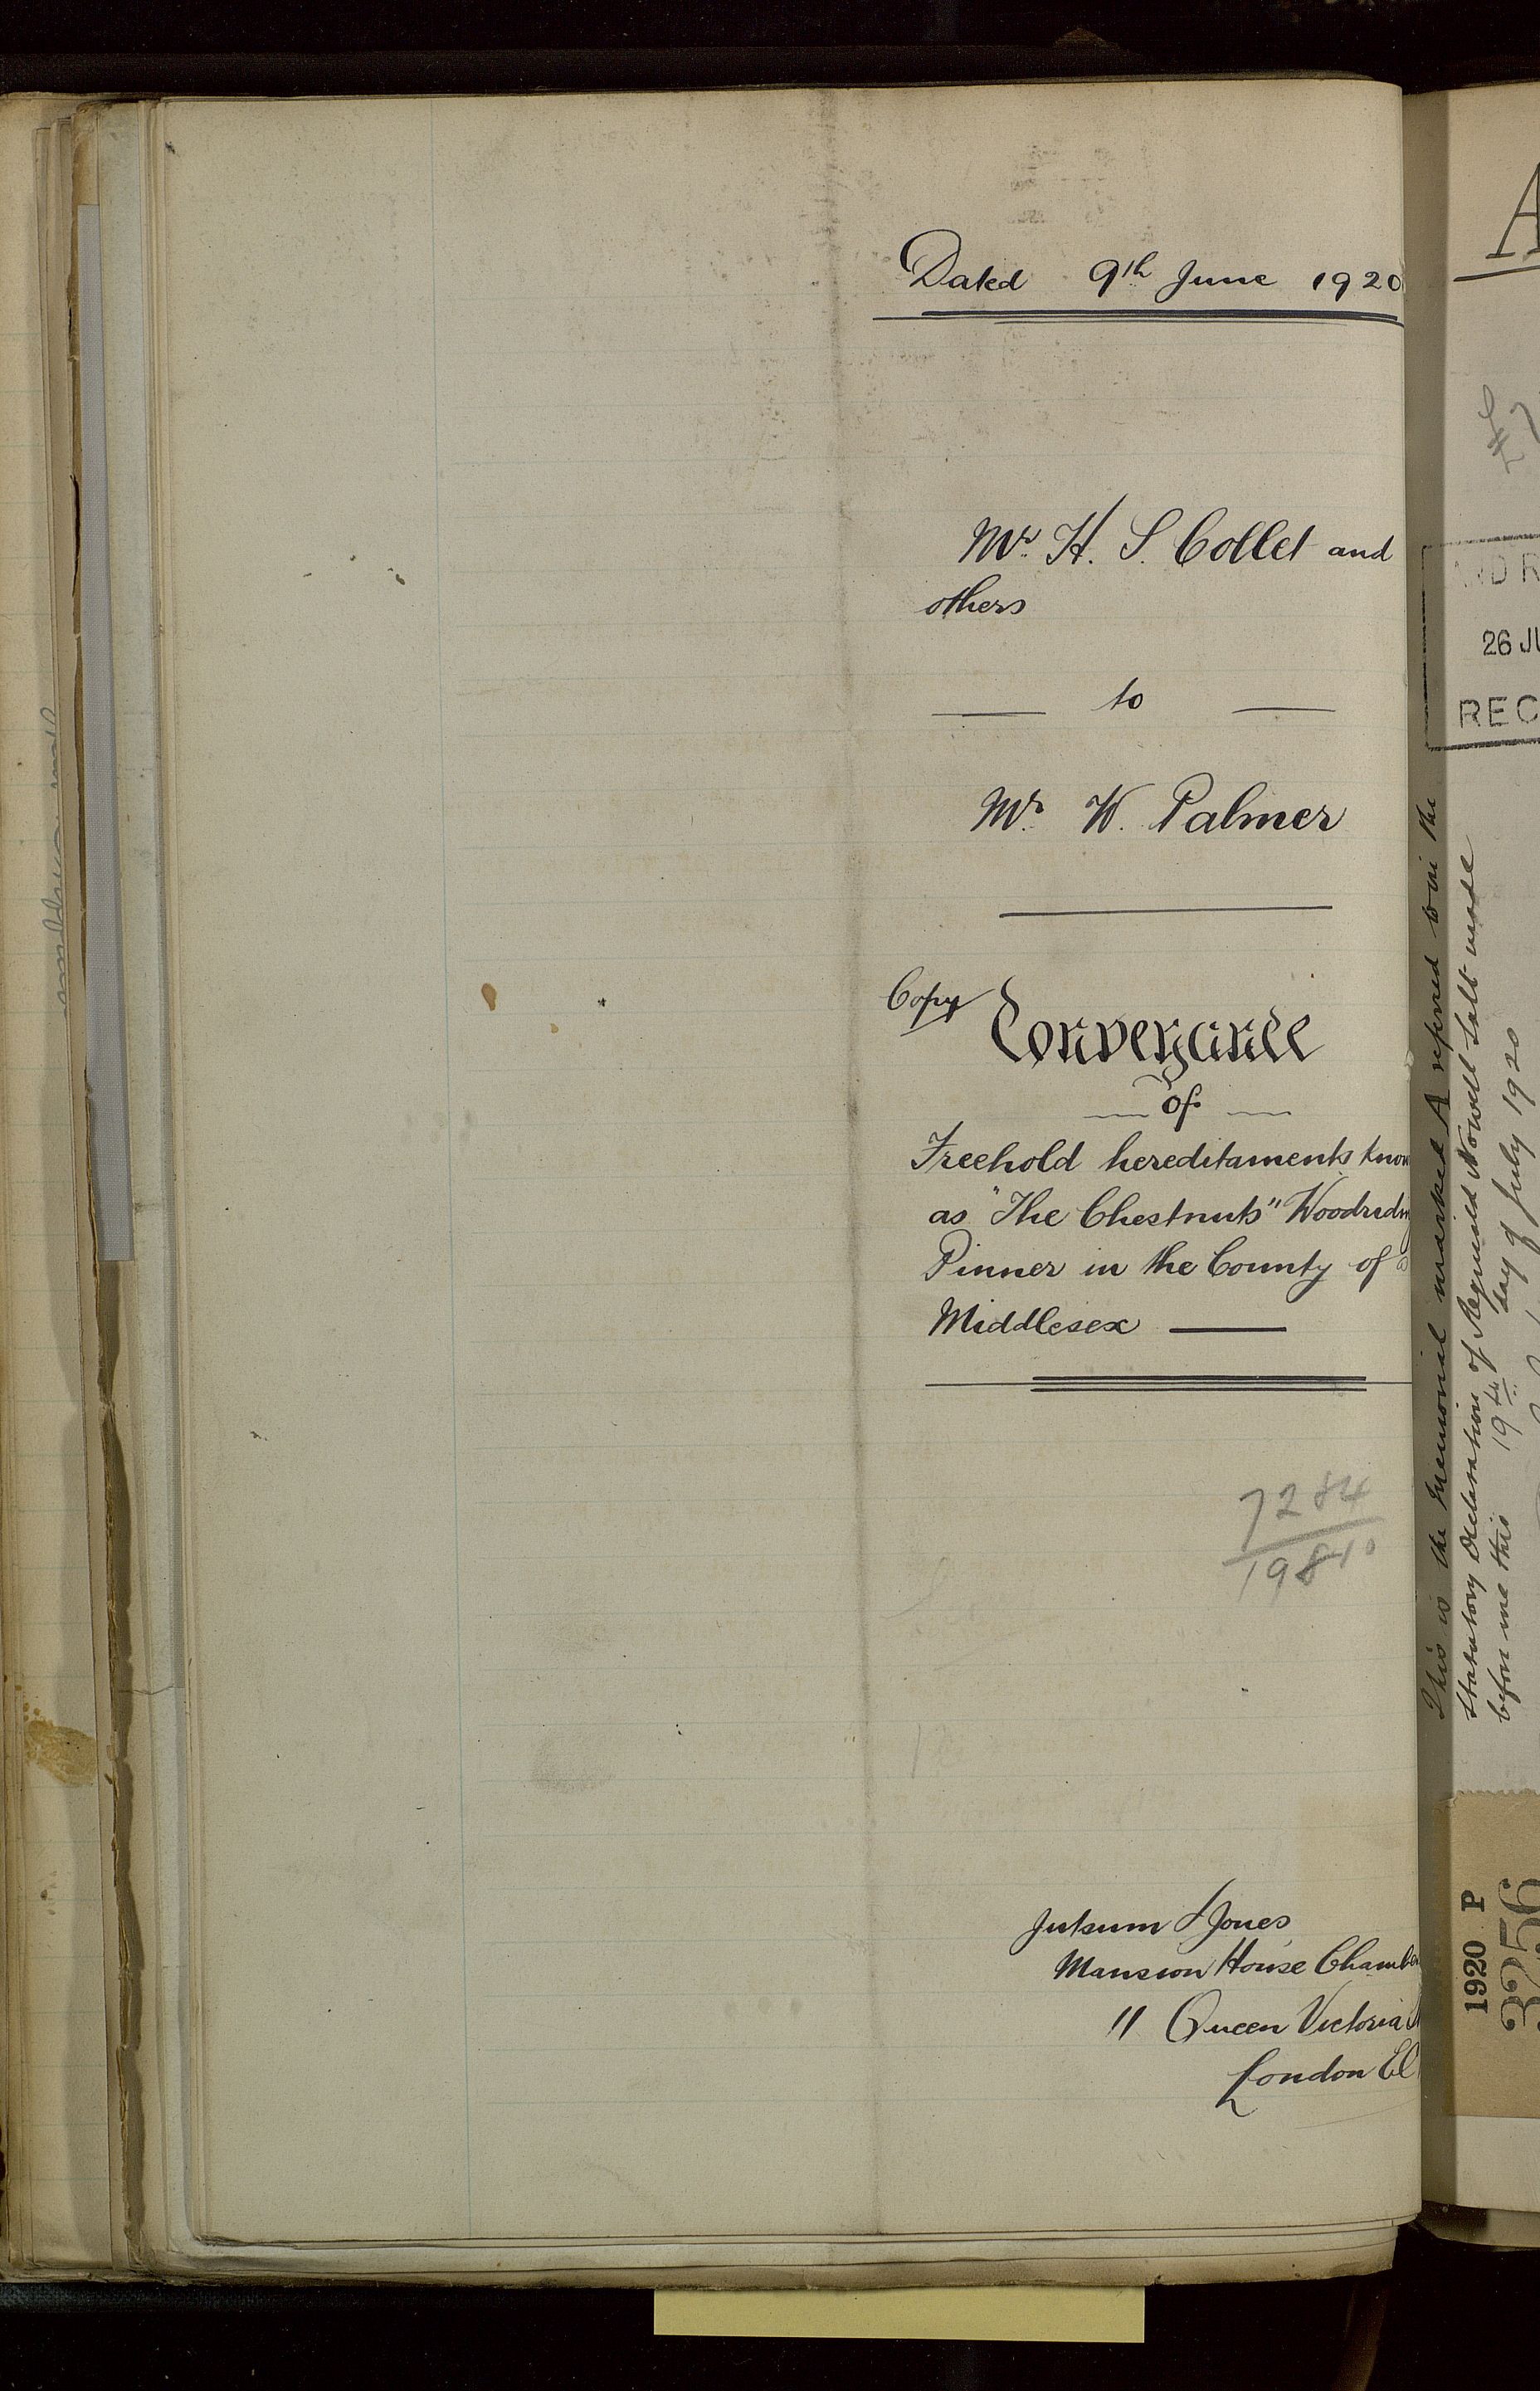 Dated 9th June 1920
Mr. H. S. Collet and
others
to
Mr. W. Palmer
Copy
Conveyance
of
Freehold hereditaments know
as "The Chestnuts" Woodridin
Pinner in the County of
Middlesex
7284
19810
Jutsum & Jones
Mansion House Chambe
11 Queen Victoria
London EC
A
£7
ND R
26 JU
REC
This is the Memorial marked A referred to in the
Statutory Declaration of Reginald Nowell Salt made
before me this 19th day of July 1920
1920 P
3256